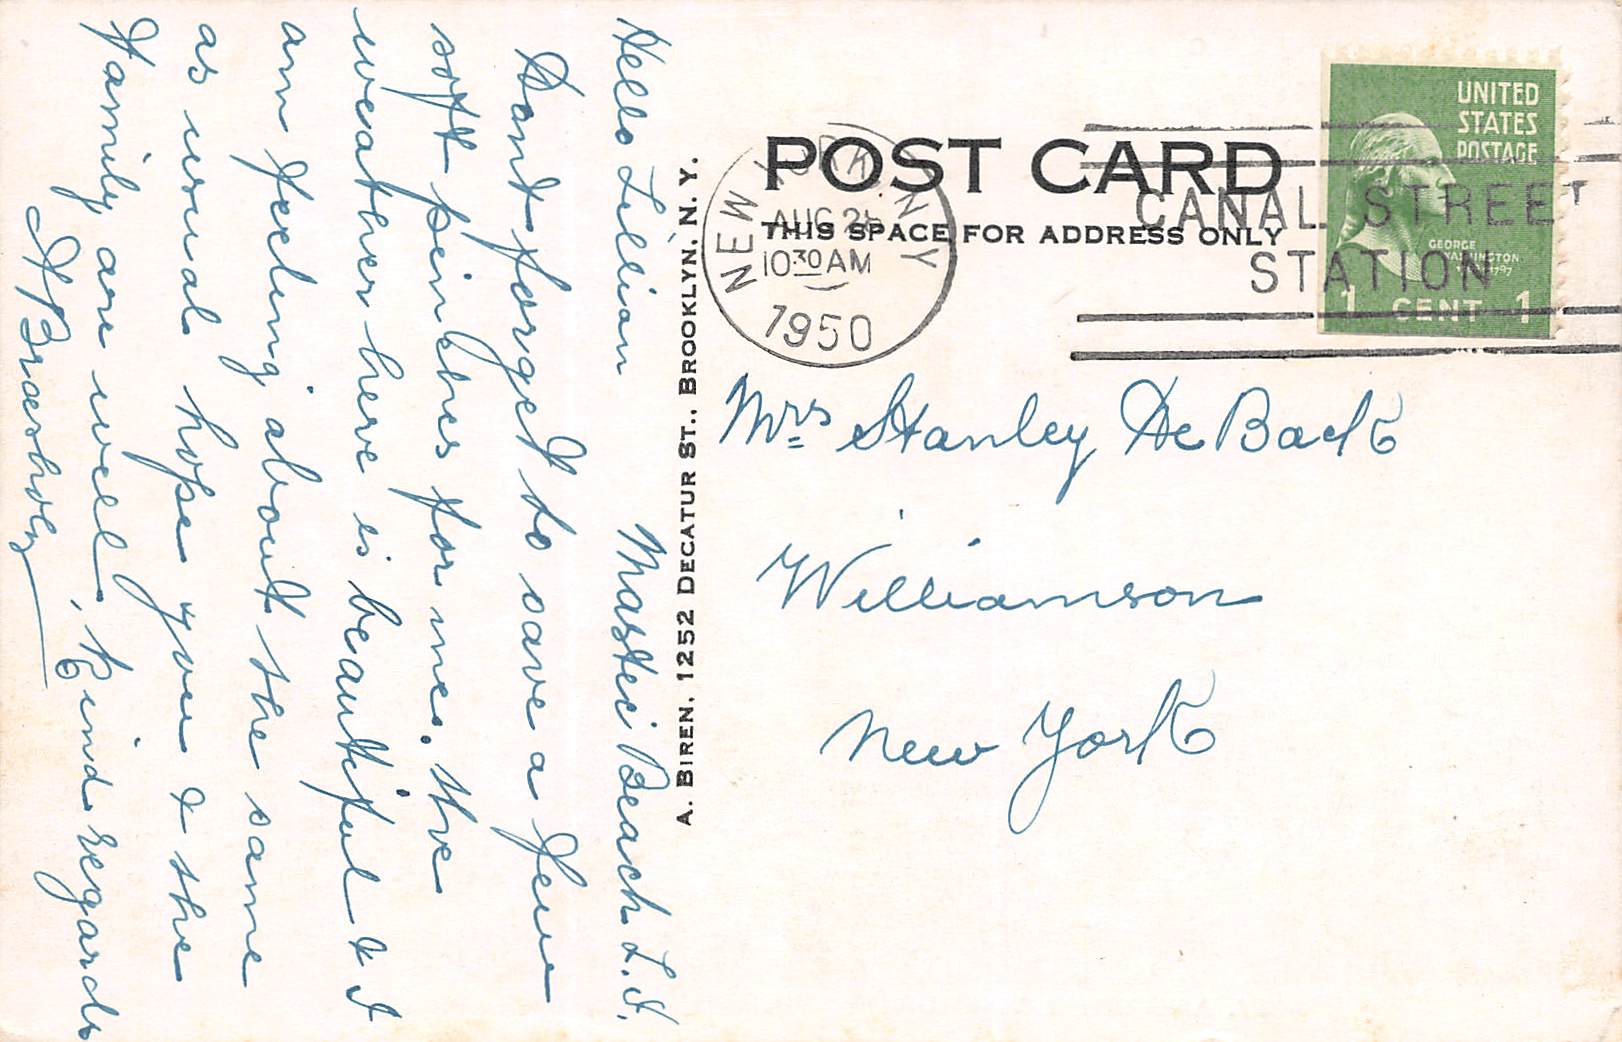 Hello Lillian Mastic Beach L.I.
Dont forget to save a few
soft pinches for me. the
weather here is beautiful & I
am feeling about the same
as usual hope you & the
Family are well, Kind regards
A. BIREN, 1252 DECATUR ST., BROOKLYN, N. Y.
POST CARD
THIS SPACE FOR ADDRESS ONLY
NEW YORK, N.Y.
AUG 2
10 30 AM
1950
CANAL STREET
STATION
UNITED
STATES
POSTAGE
GEORGE
WASHINGTON
1 CENT 1
Mrs Stanley De Back
Williamson
New York